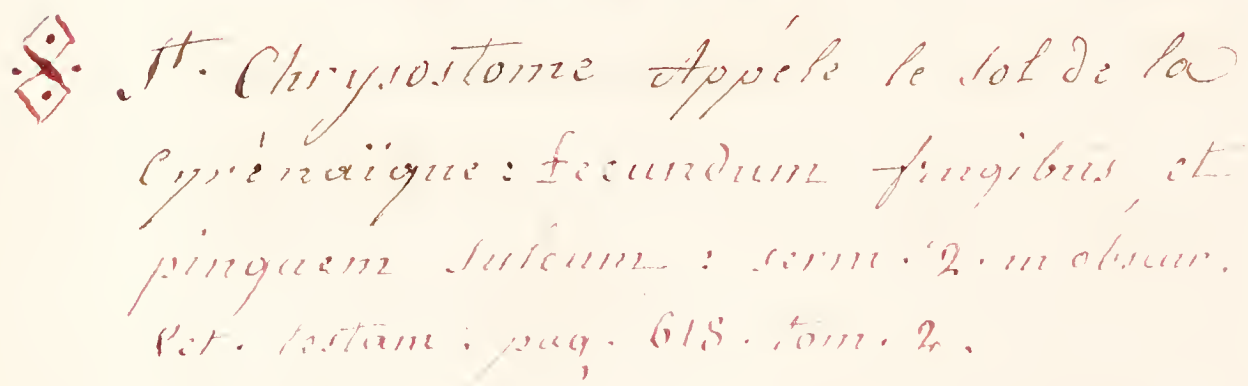 St. Chrysostome Appéle le sol de la
Cyrénaïque : fecundum frugibus et
pinguem sulcum : serm. 2. in obscur.
Vet. testam : pag. 618. tom. 2.